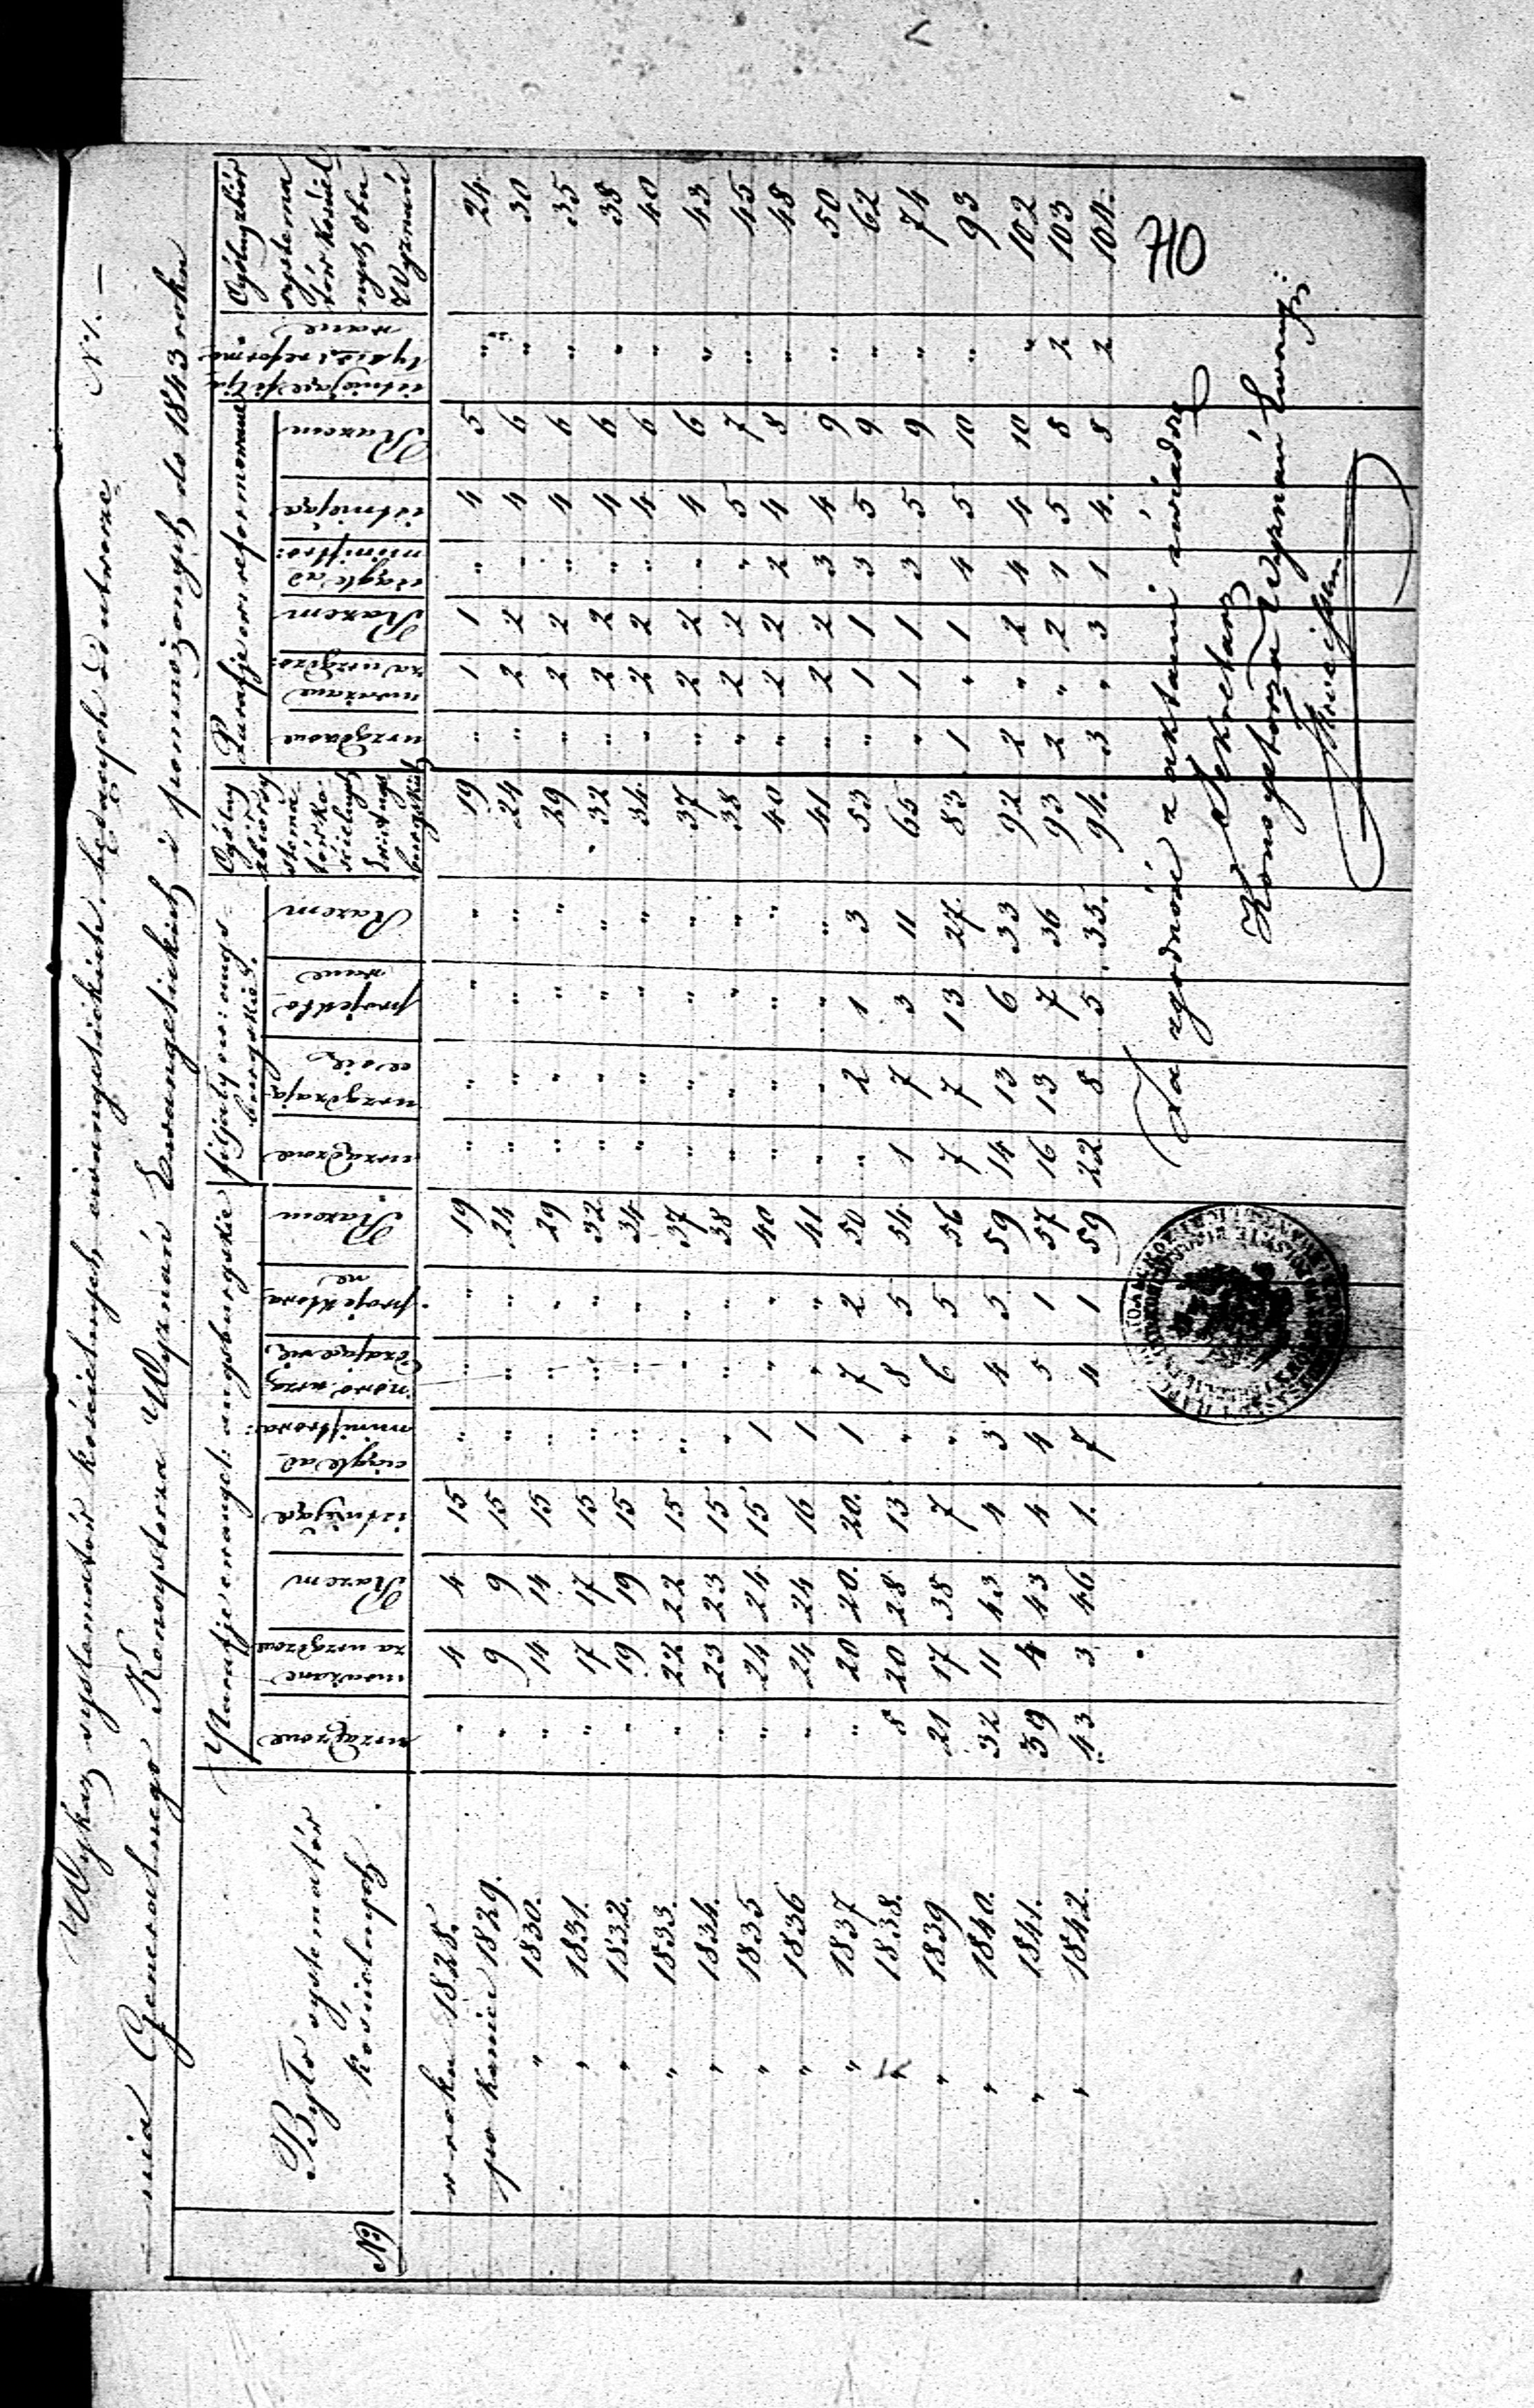 N 1. —
Wykaz systematów kościelnych ewangelickich, będących do utworze-
nia Generalnego Konsystorza Wyznań Ewangelickich i pomnożonych do 1843 roku
No
Było systematów kościelnych
Parafje ewangel: augsburgskie
urządzone
uważane za urządzone
Razem
istniejące
ciągle administrowa:
nowo urządzające się
projektowane
Razem
filjały ew: augsburgskie.
urządzone
urządzające się
projektowane
Razem
Ogólny zbiór systematów kościelnych Ewang: Augsburgskich
Parafje ew: reformowane
urządzone
uważane za urządzo:
Razem
ciągle administro:
istniejące
Razem
istniejące filjały ew: reformowane
Ogólny zbiór systematów kościelnych obu Wyznań
w roku 1828. " 4 4 15 " " " 19 " " " " 19 " 1 1 " 4 5 " 24
po koniec 1829. " 9 9 15 " " " 24 " " " " 24 " 2 2 " 4 6 " 30
" 1830. " 14 14 15 " " " 29 " " " " 29 " 2 2 " 4 6 " 35
" 1831. " 17 17 15 " " " 32 " " " " 32 " 2 2 " 4 6 " 38
" 1832. " 19 19 15 " " " 34 " " " " 34 " 2 2 " 4 6 " 40
" 1833. " 22 22 15 " " " 37 " " " " 37 " 2 2 " 4 6 " 43
" 1834. " 23 23 15 " " " 38 " " " " 38 " 2 2 " 5 7 " 45
" 1835 " 24 24 15 1 " " 40 " " " " 40 " 2 2 2 4 8 " 48
" 1836 " 24 24 16 1 " " 41 " " " " 41 " 2 2 3 4 9 " 50
" 1837 " 20 20 20 1 7 2 50 " 2 1 3 53 " 1 1 3 5 9 " 62
" 1838. 8 20 28 13 " 8 5 54 1 7 3 11 65 " 1 1 3 5 9 " 74
" 1839 21 17 38 7 " 6 5 56 7 7 13 27 83 1 " 1 4 5 10 " 93
" 1840. 32 11 43 4 3 4 5 59 14 13 6 33 92 2 " 2 4 4 10 " 102
" 1841. 39 4 43 4 4 5 1 57 16 13 7 36 93 2 " 2 1 5 8 2 103
" 1842. 43 3 46 1 7 4 1 59 22 8 5 35 94 3 " 3 1 4 8 2 104
710
Za zgodność z aktami świadczę
Sekretarz
Konsystorza Wyznań Ewangje: